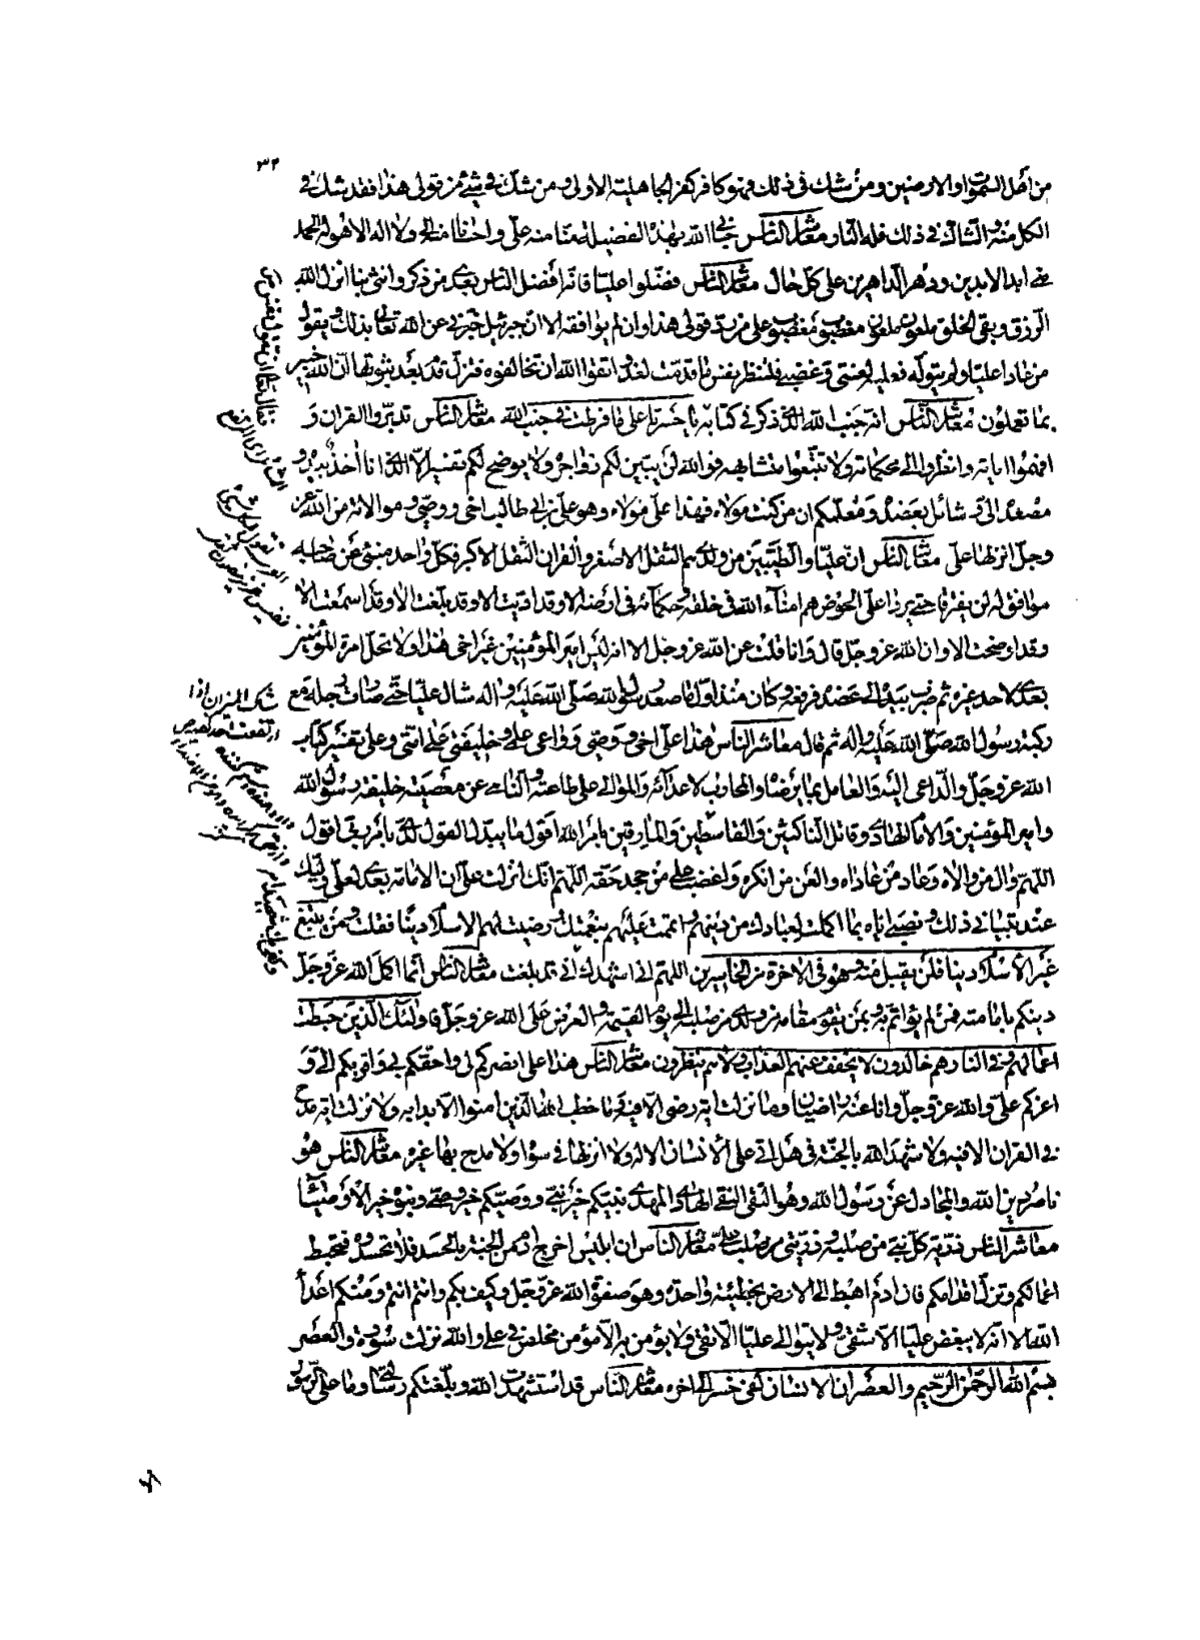 ٣٢
من اهل السموات والارضين ومن شك فى ذلك فهو كافر كفر الجاهلية الاولى ومن شك فى شئ من قولى هذا فقد شك فى
الكل منه والشاك فى ذلك فله النار معاشر الناس حبانى الله بهذه الفضيلة منا منه على واحسانا منه الى ولا اله الا هو له الحمد
منى ابد الابدين ودهر الداهرين على كل حال معاشر الناس فضلوا عليا فانه افضل الناس بعدى من ذكر وانثى بنا انزل الله
الرزق وبقى الخلق ملعون ملعون مغضوب مغضوب على من رد قولى هذا وان لم يوافقه الا ان جبرئيل خبرنى عن الله تعالى بذلك ويقول
من عادا عليا ولم يتوله فعليه لعنتى وغضبى فلتنظر نفس ما قدمت لغد واتقوا الله ان تخالفوه فتزل قدم بعد ثبوتها ان الله خبير
بما تعملون معاشر الناس انه جنب الله الذى ذكر فى كتابه يا حسرتا على ما فرطت فى جنب الله معاشر الناس تدبروا القران و
افهموا اياته وانظروا الى محكماته ولا تتبعوا متشابهه فوالله لن يبين لكم زواجره ولا يوضح لكم تفسيره الا الذى انا اخذ بيده و
مصعده الى وشائل بعضده ومعلمكم ان من كنت مولاه فهذا على مولاه وهو على بن ابى طالب اخى ووصيى وموالاته من الله عز
وجل انزلها على معاشر الناس ان عليا والطيبين من ولدى هم الثقل الاصغر والقران الثقل الاكبر فكل واحد منبئ عن صاحبه
موافق له لن يفترقا حتى يردا على الحوض هم امناء الله فى خلقه وحكمائه فى ارضه الا وقد اديت الا وقد بلغت الا وقد اسمعت الا
وقد اوضحت الا وان الله عز وجل قال وانا قلت عن الله عز وجل الا انه ليس امير المؤمنين غير اخى هذا ولا تحل امرة المؤمنين
بعدى لاحد غيره ثم ضرب بيده الى عضده فرفعه وكان منذ اول ما صعد رسول الله صلى الله عليه واله شال عليا حتى صارت رجله مع
ركبة رسول الله صلى الله عليه واله ثم قال معاشر الناس هذا على اخى ووصيى وواعى علمى وخليفتى على امتى وعلى تفسير كتاب
الله عز وجل والداعى اليه والعامل بما يرضاه والمحارب لاعدائه والموالى على طاعته والناهى عن معصيته خليفة رسول الله
وامير المؤمنين والامام الهادى وقاتل الناكثين والقاسطين والمارقين بامر الله اقول ما يبدل القول لدى بامر ربى اقول
اللهم وال من والاه وعاد من عاداه والعن من انكره واغضب على من جحد حقه اللهم انك انزلت على ان الامامة بعدى لعلى وليك
عند تبيانى ذلك ونصبى اياه بما اكملت لعبادك من دينهم واتممت عليهم بنعمتك ورضيت لهم الاسلام دينا فقلت ومن يبتغ
غير الاسلام دينا فلن يقبل منه وهو فى الاخرة من الخاسرين اللهم انى اشهدك انى قد بلغت معاشر الناس انما اكمل الله عز وجل
دينكم بامامته فمن لم يؤاتم به وبمن يقوم مقامه من ولدى من صلبه الى يوم القيمة والعرض على الله عز وجل فاولئك الذين حبطت
اعمالهم وفى النار هم خالدون لا يخفف عنهم العذاب ولا هم ينظرون معاشر الناس هذا على انصركم لى واحقكم بى واقربكم الى و
اعزكم على والله عز وجل وانا عنه راضيان وما نزلت اية رضى الا فيه وما خطب الله الذين امنوا الا بدابه ولا نزلت اية مدح
فى القران الا فيه ولا شهد الله بالجنة فى هل اتى على الانسان الا له ولا انزلها فى سواه ولا مدح بها غيره معاشر الناس هو
ناصر دين الله والمجادل عن رسول الله وهو التقى النقى الهادى المهدى نبيكم خير نبى ووصيكم خير وصى وبنوه خير الاوصياء
معاشر الناس ذرية كل نبى من صلبه وذريتى من صلب على معاشر الناس ان ابليس اخرج ادم من الجنة بالحسد فلا تحسدوه فتحبط
اعمالكم وتزل اقدامكم فان ادم اهبط الى الارض بخطيئة واحدة وهو صفوة الله عز وجل وكيف بكم وانتم انتم ومنكم اعداء
الله الا انه لا يبغض عليا الا شقى ولا يتوالى عليا الا تقى ولا يؤمن به الا مؤمن مخلص فى على والله نزلت سورة والعصر
بسم الله الرحمن الرحيم والعصر ان الانسان لفى خسر الى اخره معاشر الناس قد استشهدت الله وبلغتكم رسالتى وما على الرسول